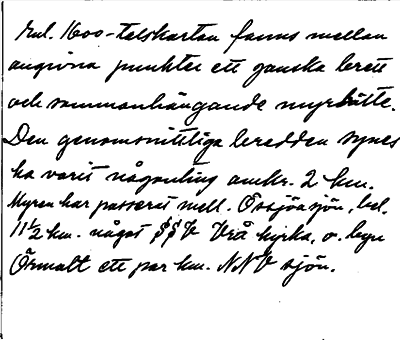 Enl. 1600-talskartan fanns mellan
angivna punkter ett ganska brett
och sammanhängande myrbälte.
Den genomsnittliga bredden synes
ha varit någonting omkr. 2 km.
Myren har passerat mell. Össjöa sjön, bel.
11½ km. något SSV Vrå kyrka, o. byn
Örmalt ett par km. NNV sjön.